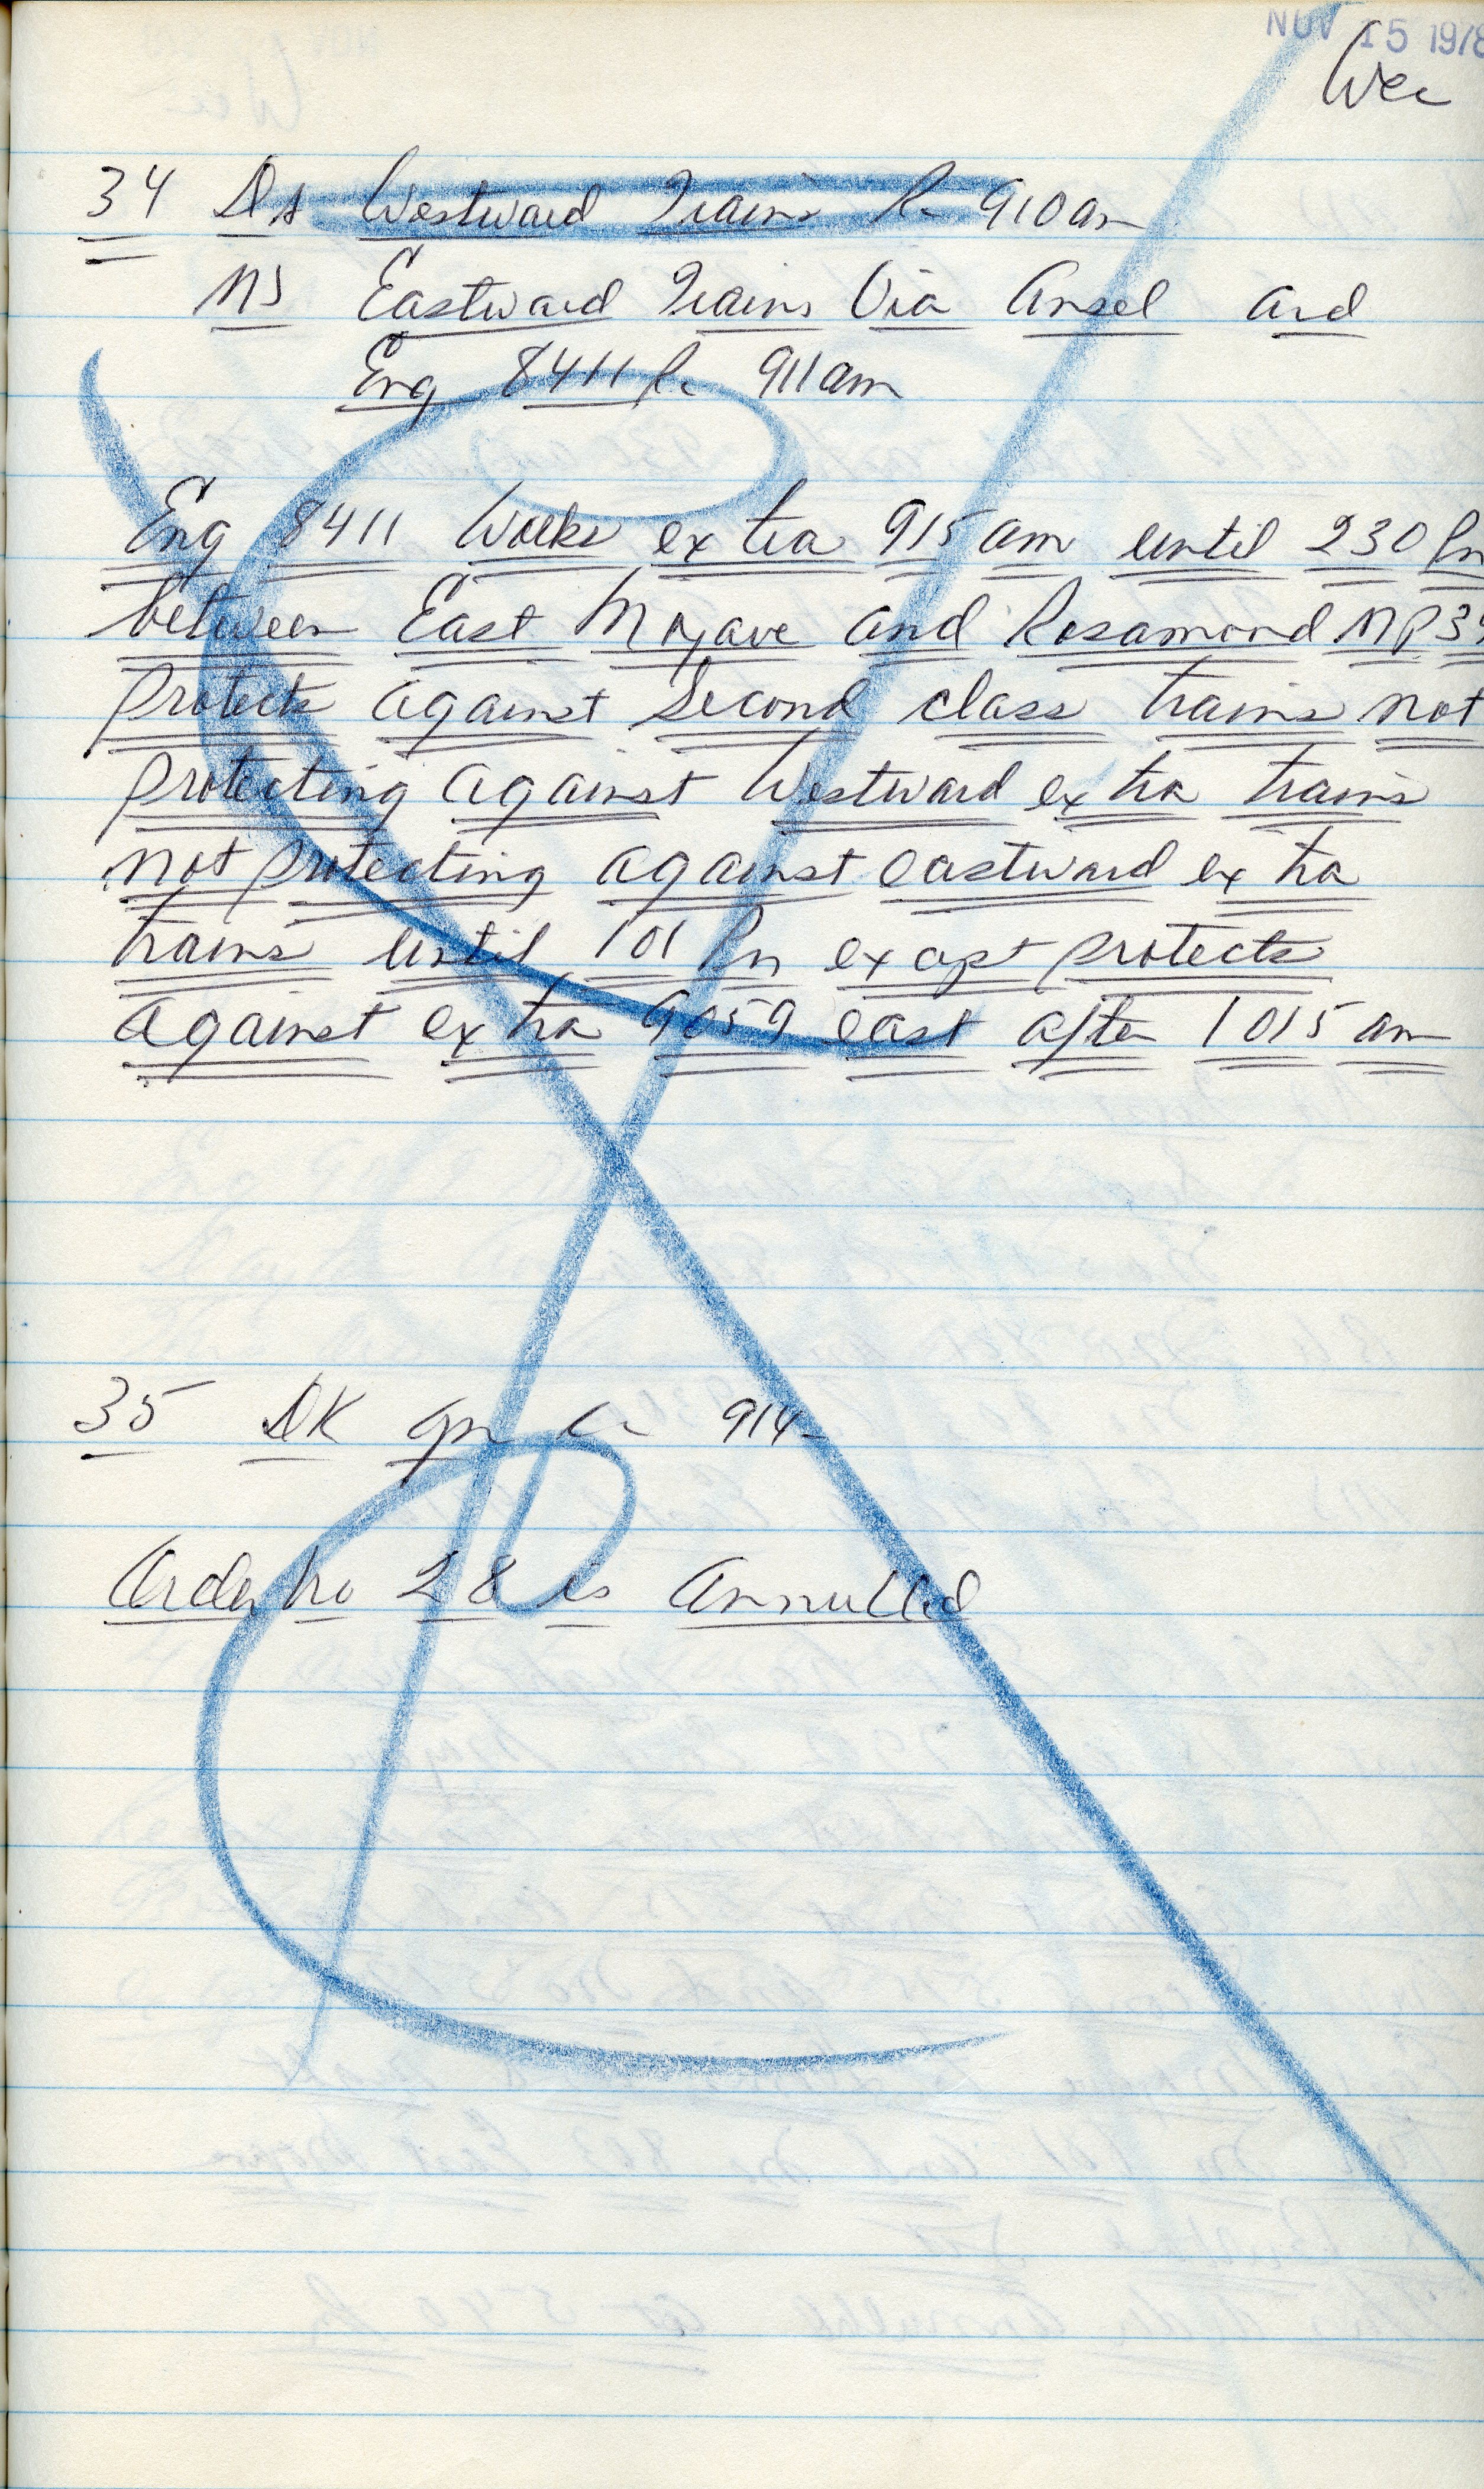 NOV 15 1978
Wec
34 Ds Westward Trains R 910am
MJ Eastward Trains Via Ansel and
Eng 8411 R 911am
Eng 8411 Works extra 915 am until 230 Pm
between East Mojave and Rosamond MP
Protects against Second class trains not
protecting against Westward extra trains
not protecting against eastward extra
trains until 101 Pm except protects
against extra 9059 east after 1015 am
35 DK Gn 914
Order No 28 is Annulled